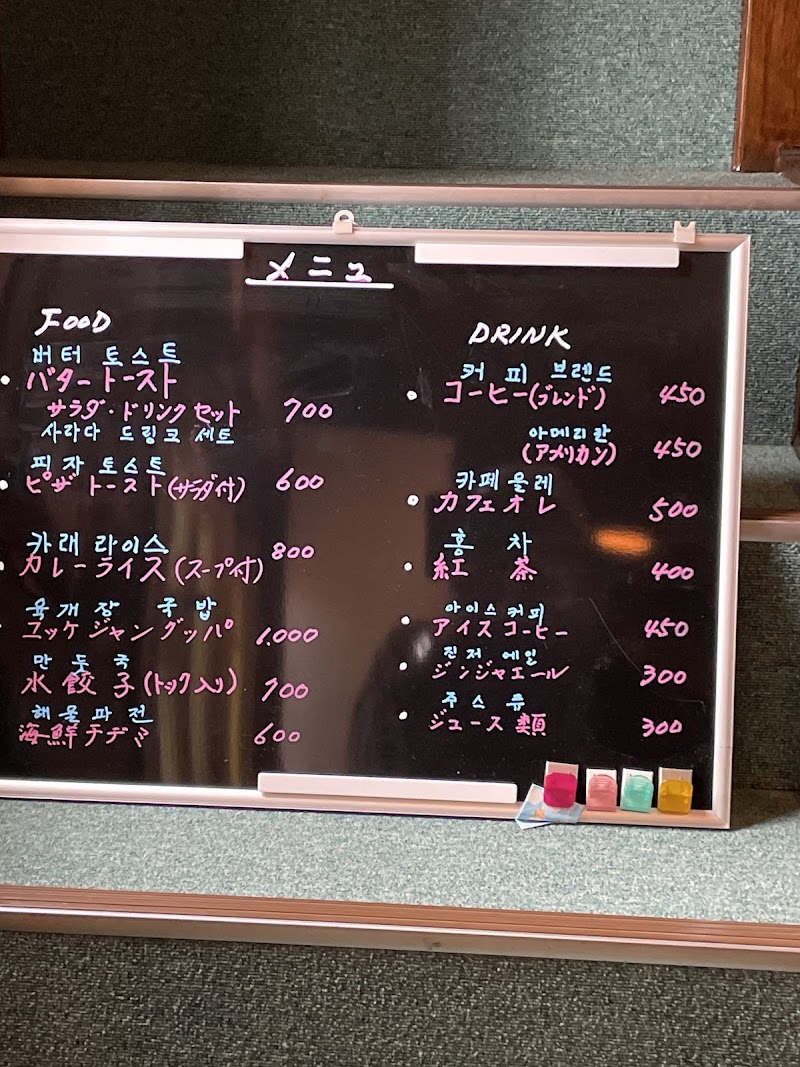 メニュー
FOOD
버터 토스트
・バタートースト
サラダ・ドリンクセット 700
사라다 드링크 세트
피자 토스트
・ピザトースト(サラダ付) 600
카래 라이스
・カレーライス(スープ付) 800
육개장 국밥
ユッケジャングッパ 1,000
만두국
水餃子(トック入り) 700
해물파전
海鮮チヂミ 600
DRINK
커피 브렌드
・コーヒー(ブレンド) 450
아메리칸
(アメリカン) 450
카페 올레
・カフェオレ 500
홍차
・紅茶 400
아이스 커피
・アイスコーヒー 450
진저 에일
・ジンジャエール 300
주스 류
・ジュース類 300